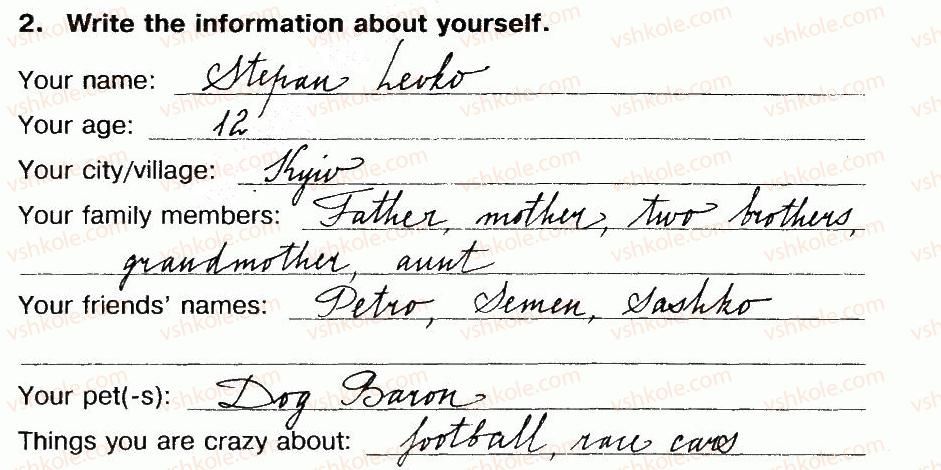 2. Write the information about yourself.
Your name: Stepan Levko
Your age: 12
Your city/village: Kyiv
Your family members: Father, mother, two brothers,
grandmother, aunt
Your friends' names: Petro, Semen, Sashko
Your pet(-s): Dog Baron
Things you are crazy about: football, race cars